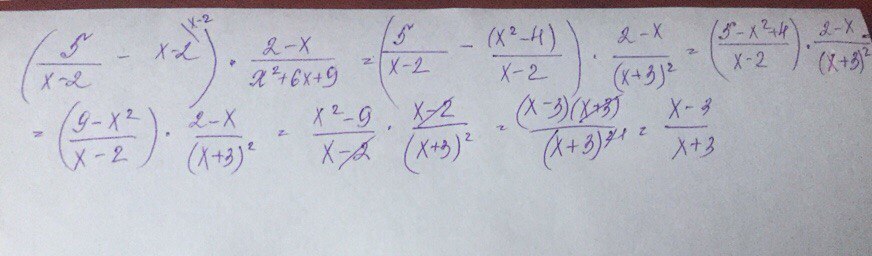 (5/(x-2) - x-2 \x-2) · (2-x)/(x²+6x+9) = (5/(x-2) - (x²-4)/(x-2)) · (2-x)/(x+3)² = ((5-x²+4)/(x-2)) · (2-x)/(x+3)²
= ((9-x²)/(x-2)) · (2-x)/(x+3)² = (x²-9)/(x-2) · (x-2)/(x+3)² = (x-3)(x+3)/(x+3)²¹ = (x-3)/(x+3)